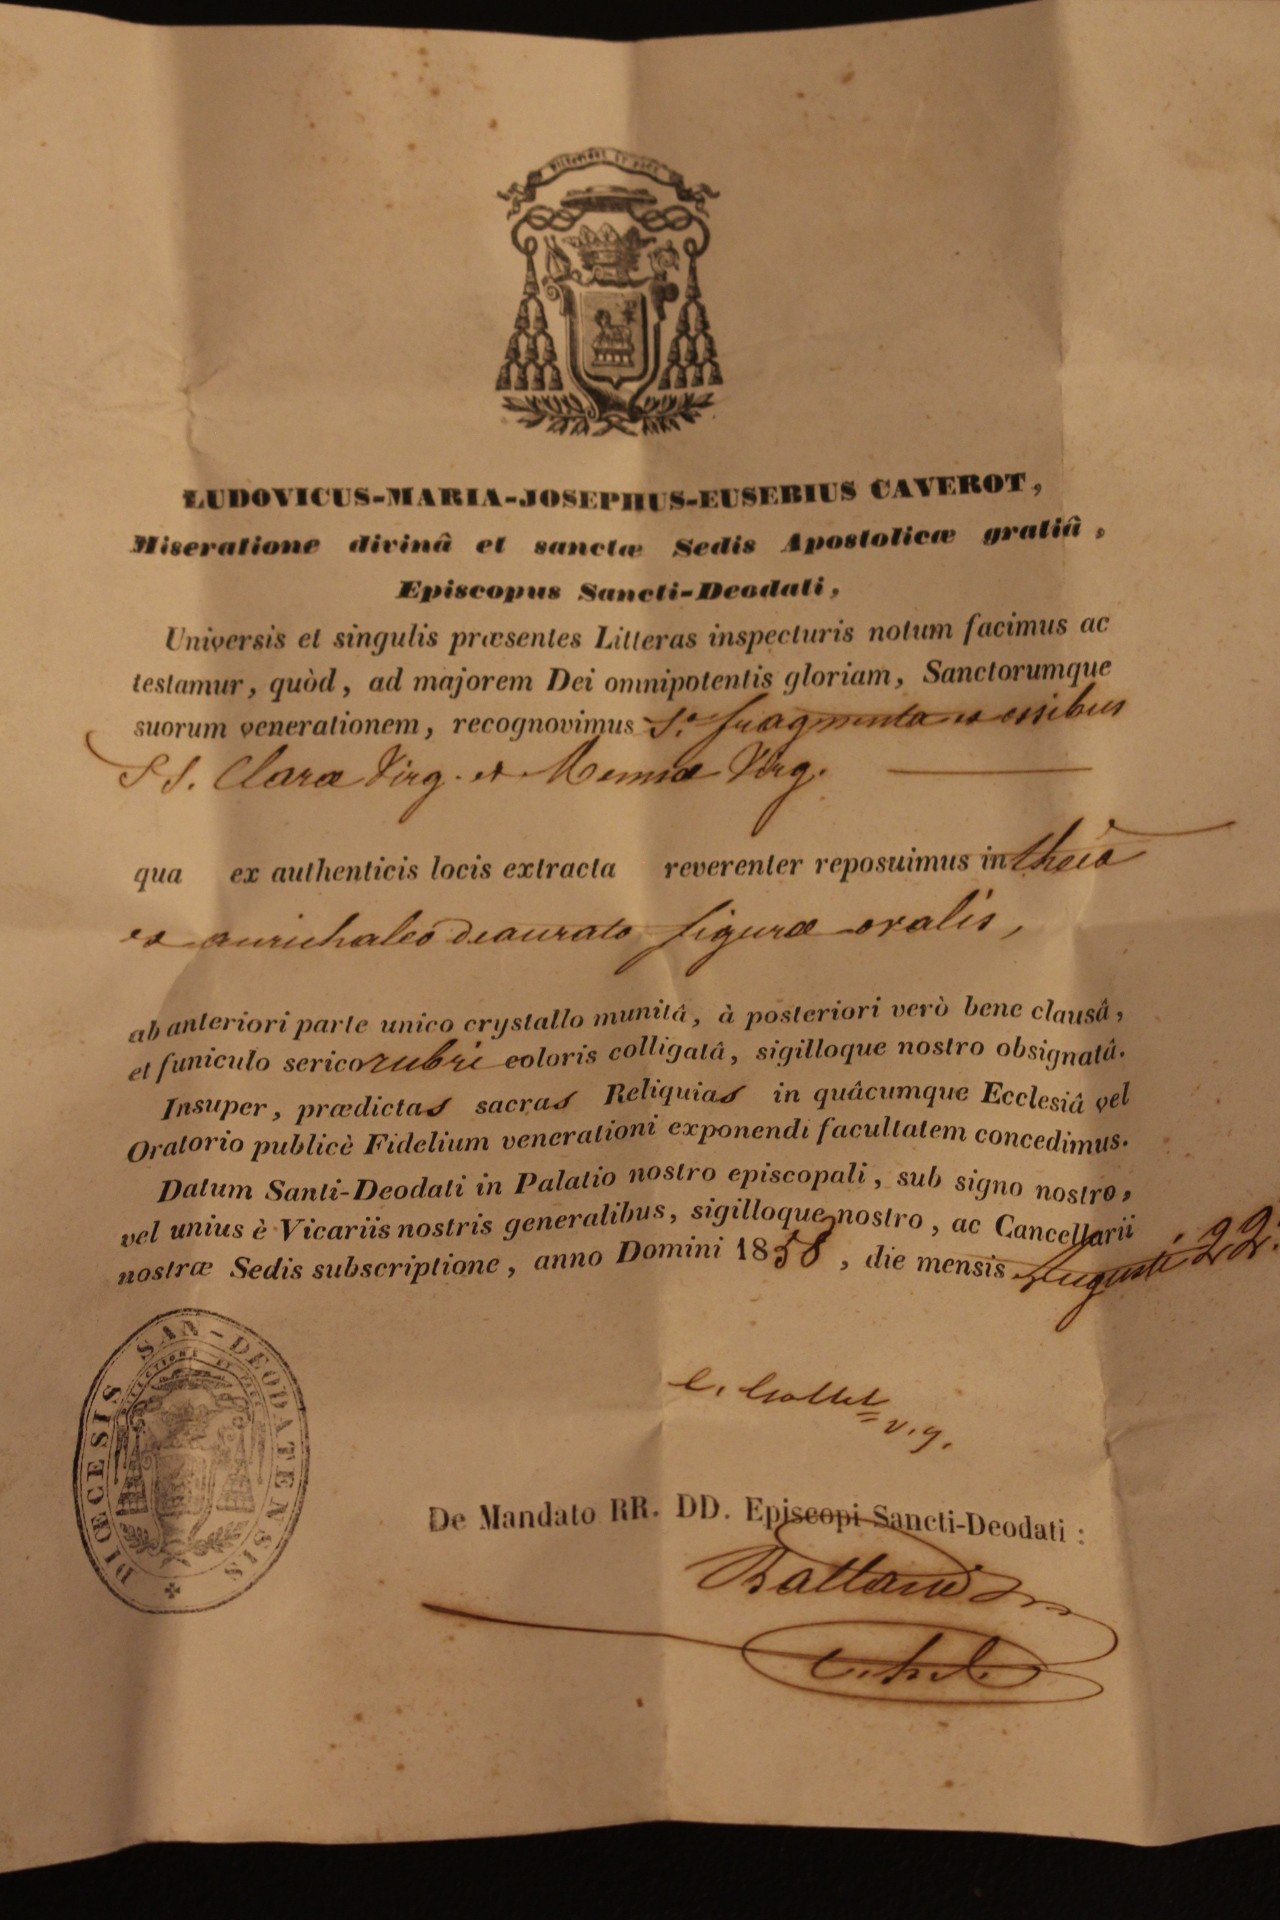 LUDOVICUS-MARIA-JOSEPHUS-EUSEBIUS CAVEROT,
Miseratione divinâ et sanctæ Sedis Apostolicæ gratiâ,
Episcopus Sancti-Deodati,
Universis et singulis præsentes Litteras inspecturis notum facimus ac
testamur, quòd, ad majorem Dei omnipotentis gloriam, Sanctorumque
suorum venerationem, recognovimus Sa. fragmenta ex ossibus
SS. Claræ Virg. et Mennæ Virg.
qua ex authenticis locis extracta reverenter reposuimus in thecâ
ex aurichalco deaurato figuræ ovalis,
ab anteriori parte unico crystallo munitâ, à posteriori verò bene clausâ,
et funiculo serico rubri coloris colligatâ, sigilloque nostro obsignatâ.
Insuper, prædictas sacras Reliquias in quâcumque Ecclesiâ vel
Oratorio publicè Fidelium venerationi exponendi facultatem concedimus.
Datum Santi-Deodati in Palatio nostro episcopali, sub signo nostro,
vel unius è Vicariis nostris generalibus, sigilloque nostro, ac Cancellarii
nostræ Sedis subscriptione, anno Domini 1858, die mensis Augusti 22.
DIŒCESIS SAN-DEODATENSIS
v. g.
De Mandato RR. DD. Episcopi Sancti-Deodati :